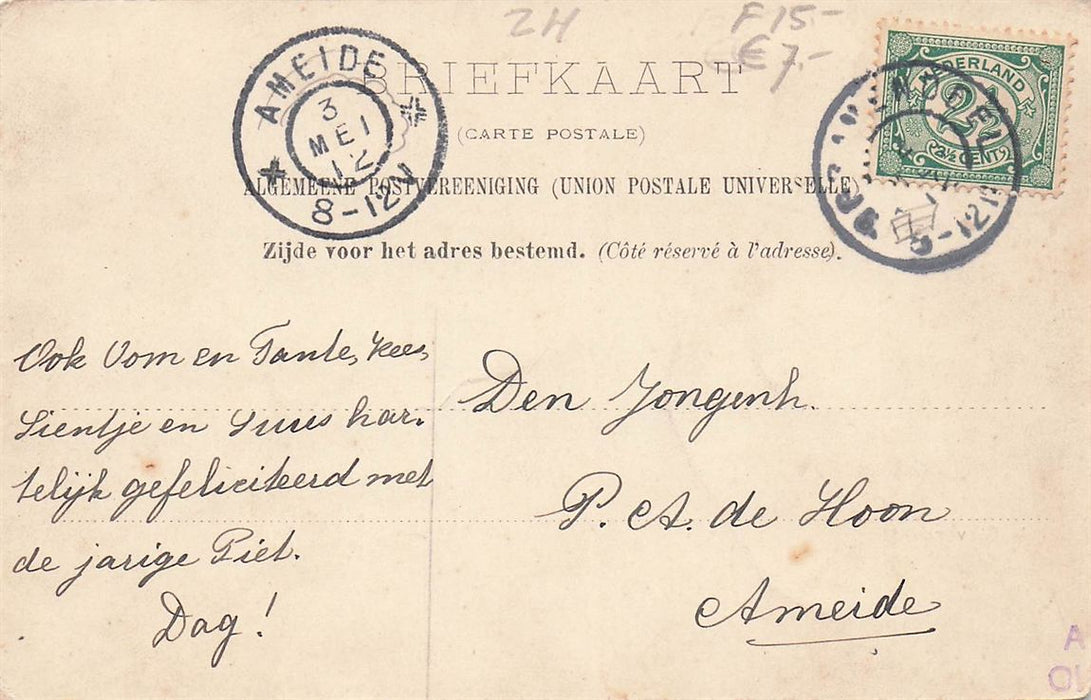 2H
F15.-
€ 7,-
BRIEFKAART
(CARTE POSTALE)
ALGEMEENE POSTVEREENIGING (UNION POSTALE UNIVERSELLE)
Zijde voor het adres bestemd. (Côté réservé à l'adresse).
AMEIDE
3
MEI
12
8-12N
NEDERLAND
2½
2½ CENT
Ook Oom en Tante, Kees,
Sientje en Guus har-
telijk gefeliciteerd met
de jarige Piet.
Dag!
Den Jongenh.
P. A. de Hoon
Ameide